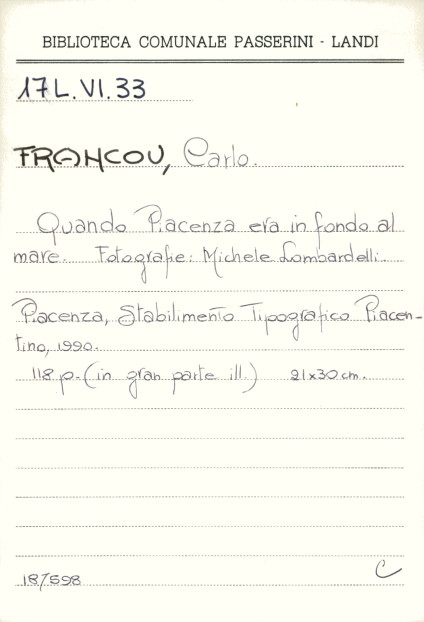 BIBLIOTECA COMUNALE PASSERINI - LANDI
17L.VI.33
FRANCOU, Carlo.
Quando Piacenza era in fondo al
mare. Fotografie: Michele Lombardelli.
Piacenza, Stabilimento Tipografico Piacen-
tino, 1990.
118 p. (in gran parte ill.) 21x30 cm.
187598
C